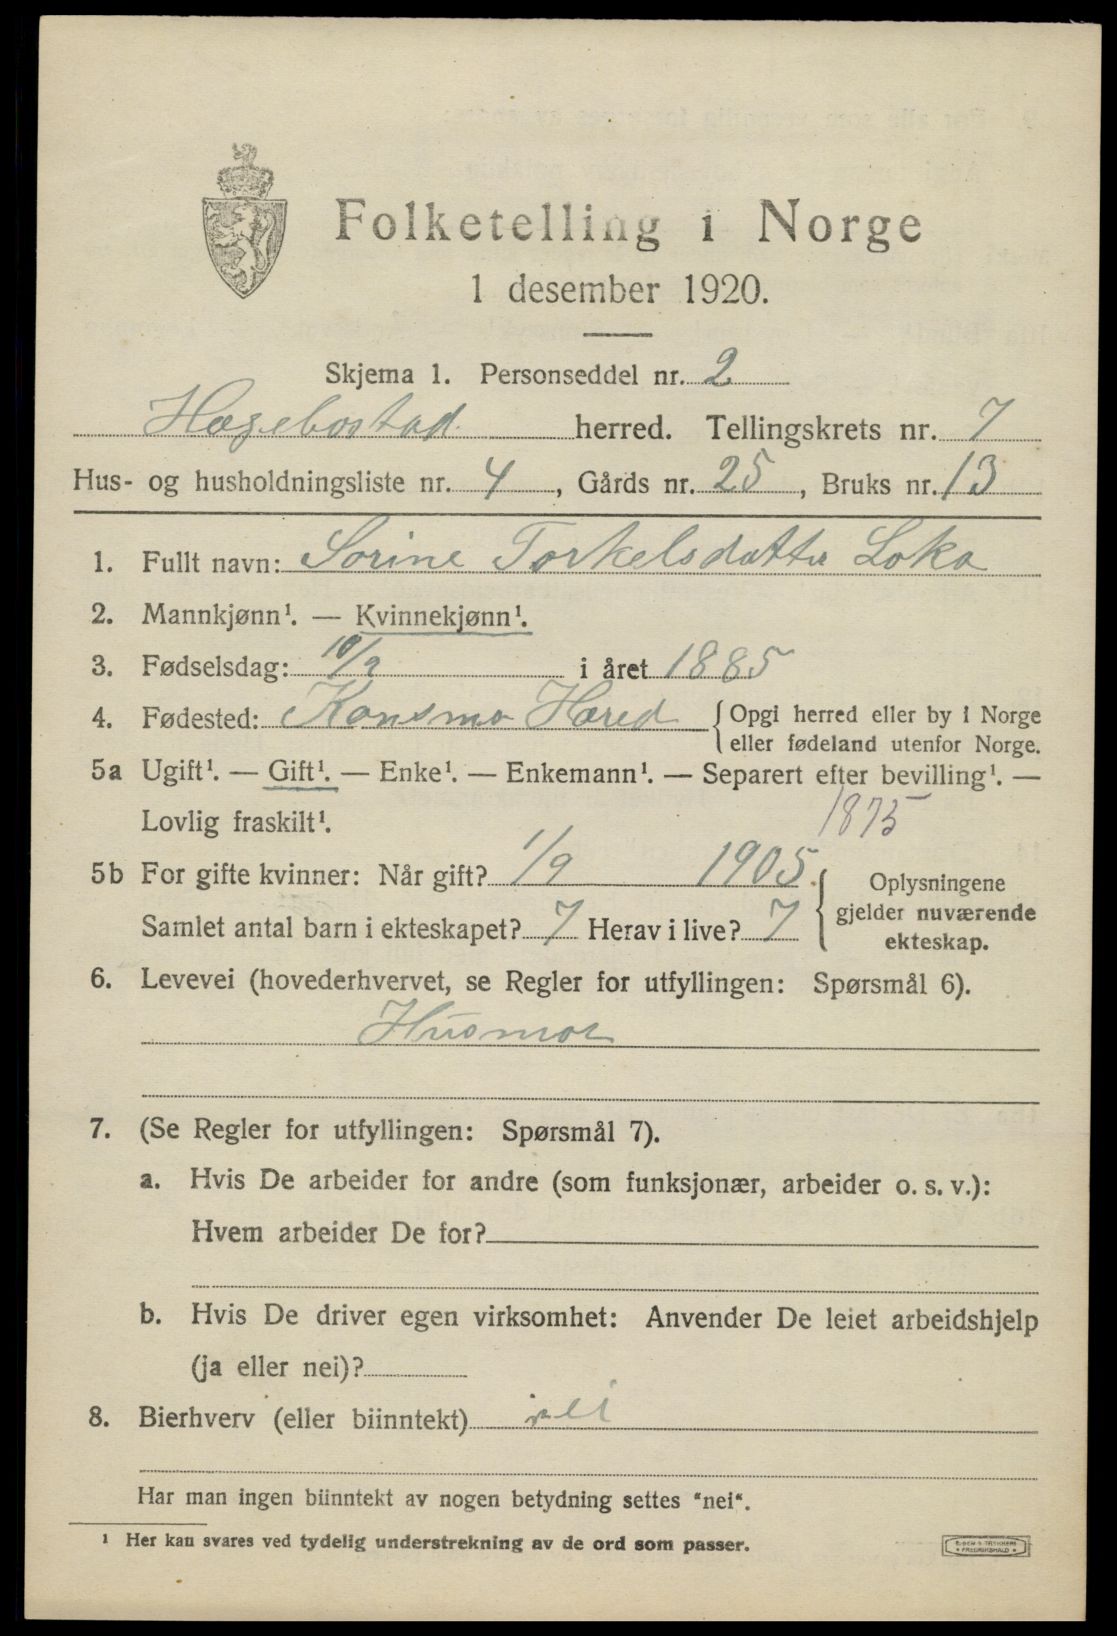 Folketelling i Norge
1 desember 1920.
Skjema 1. Personseddel nr. 2
Hægebostad herred. Tellingskrets nr. 7
Hus- og husholdningsliste nr. 4, Gårds nr. 25, Bruks nr. 13
1. Fullt navn: Sorine Torkelsdatter Loka
2. Mannkjønn¹. — Kvinnekjønn¹.
3. Fødselsdag: 10/9 i året 1885
4. Fødested: Konsmo Hered {Opgi herred eller by i Norge
eller fødeland utenfor Norge.
5a Ugift¹. — Gift¹. — Enke¹. — Enkemann¹. — Separert efter bevilling¹. —
Lovlig fraskilt¹. 1875
5b For gifte kvinner: Når gift? 1/9 1905. {Oplysningene
gjelder nuværende
ekteskap.
Samlet antal barn i ekteskapet? 7 Herav i live? 7
6. Levevei (hovederhvervet, se Regler for utfyllingen: Spørsmål 6).
Husmor
7. (Se Regler for utfyllingen: Spørsmål 7).
a. Hvis De arbeider for andre (som funksjonær, arbeider o. s. v.):
Hvem arbeider De for?
b. Hvis De driver egen virksomhet: Anvender De leiet arbeidshjelp
(ja eller nei)?
8. Bierhverv (eller biinntekt) nei
Har man ingen biinntekt av nogen betydning settes "nei".
¹ Her kan svares ved tydelig understrekning av de ord som passer.